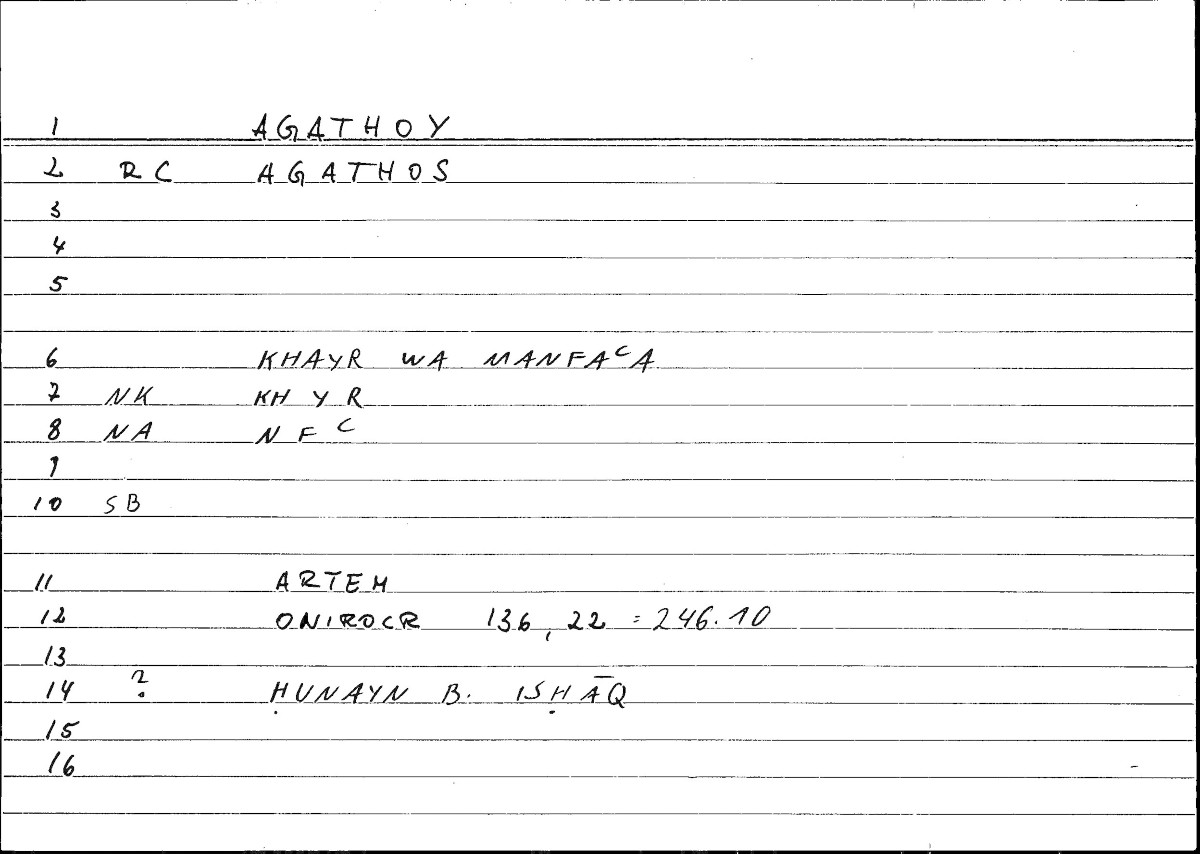 1 AGATHOY
2 RC AGATHOS
3
4
5
6 KHAYR WA MANFAᶜA
7 NK KH Y R
8 NA N F ᶜ
9
10 SB
11 ARTEM
12 ONIROCR 136,22 = 246.10
13
14 ? ḤUNAYN B. ISḤĀQ
15
16